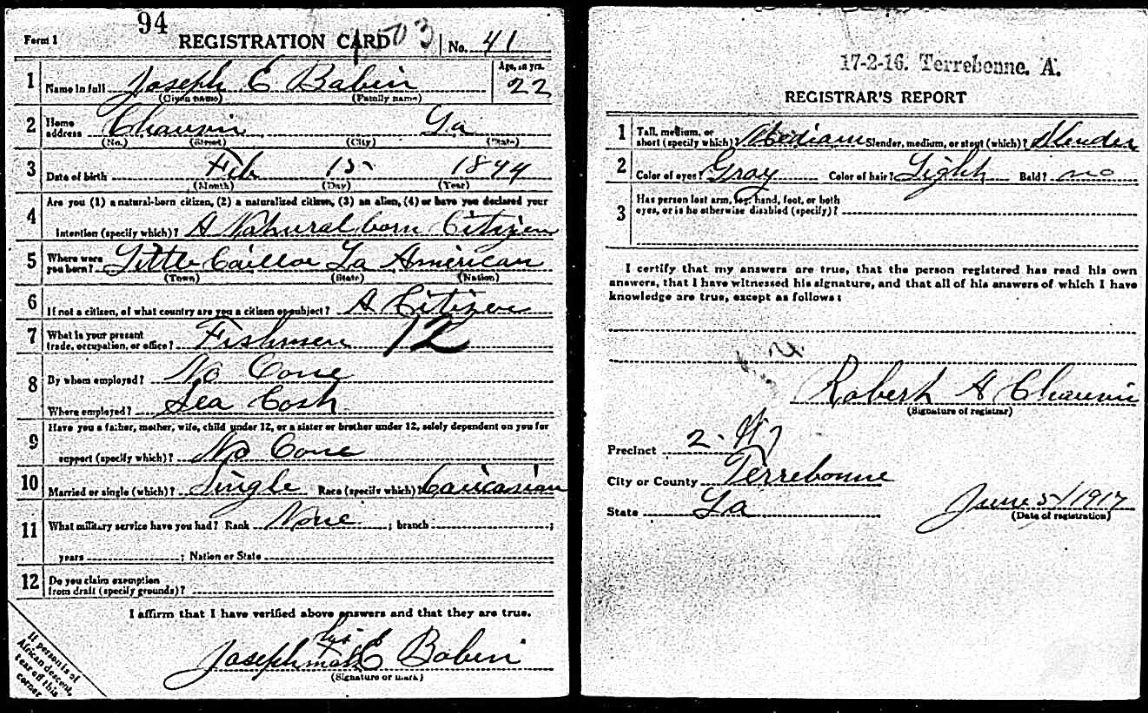 94
Form 1 REGISTRATION CARD No. 41
1 Name in full Joseph E Babin Age, in yrs. 22
(Given name) (Family name)
2 Home address Chauvin La
(No.) (Street) (City) (State)
3 Date of birth Feb 15 1894
(Month) (Day) (Year)
4 Are you (1) a natural-born citizen, (2) a naturalized citizen, (3) an alien, (4) or have you declared your
intention (specify which)? A Natural born Citizen
5 Where were you born? Little Caillou La American
(Town) (State) (Nation)
6 If not a citizen, of what country are you a citizen or subject? A Citizen
7 What is your present trade, occupation, or office? Fishmen 12
8 By whom employed? No Cone
Where employed? Sea Cosh
9 Have you a father, mother, wife, child under 12, or a sister or brother under 12, solely dependent on you for
support (specify which)? No Cone
10 Married or single (which)? Single Race (specify which)? Caucasian
11 What military service have you had? Rank None ; branch ;
years ; Nation or State
12 Do you claim exemption from draft (specify grounds)?
I affirm that I have verified above answers and that they are true.
his
Joseph mark E Babin
(Signature or mark)
If person is of
African descent,
tear off this
corner
17-2-16. Terrebonne. A.
REGISTRAR'S REPORT
1 Tall, medium, or short (specify which)? Mediam Slender, medium, or stout (which)? Slender
2 Color of eyes? Gray Color of hair? Light Bald? no
3 Has person lost arm, leg, hand, foot, or both
eyes, or is he otherwise disabled (specify)?
I certify that my answers are true, that the person registered has read his own
answers, that I have witnessed his signature, and that all of his answers of which I have
knowledge are true, except as follows:
Robert A Chauvin
(Signature of registrar)
Precinct 2-W7
City or County Terrebonne
State La June 5/1917
(Date of registration)